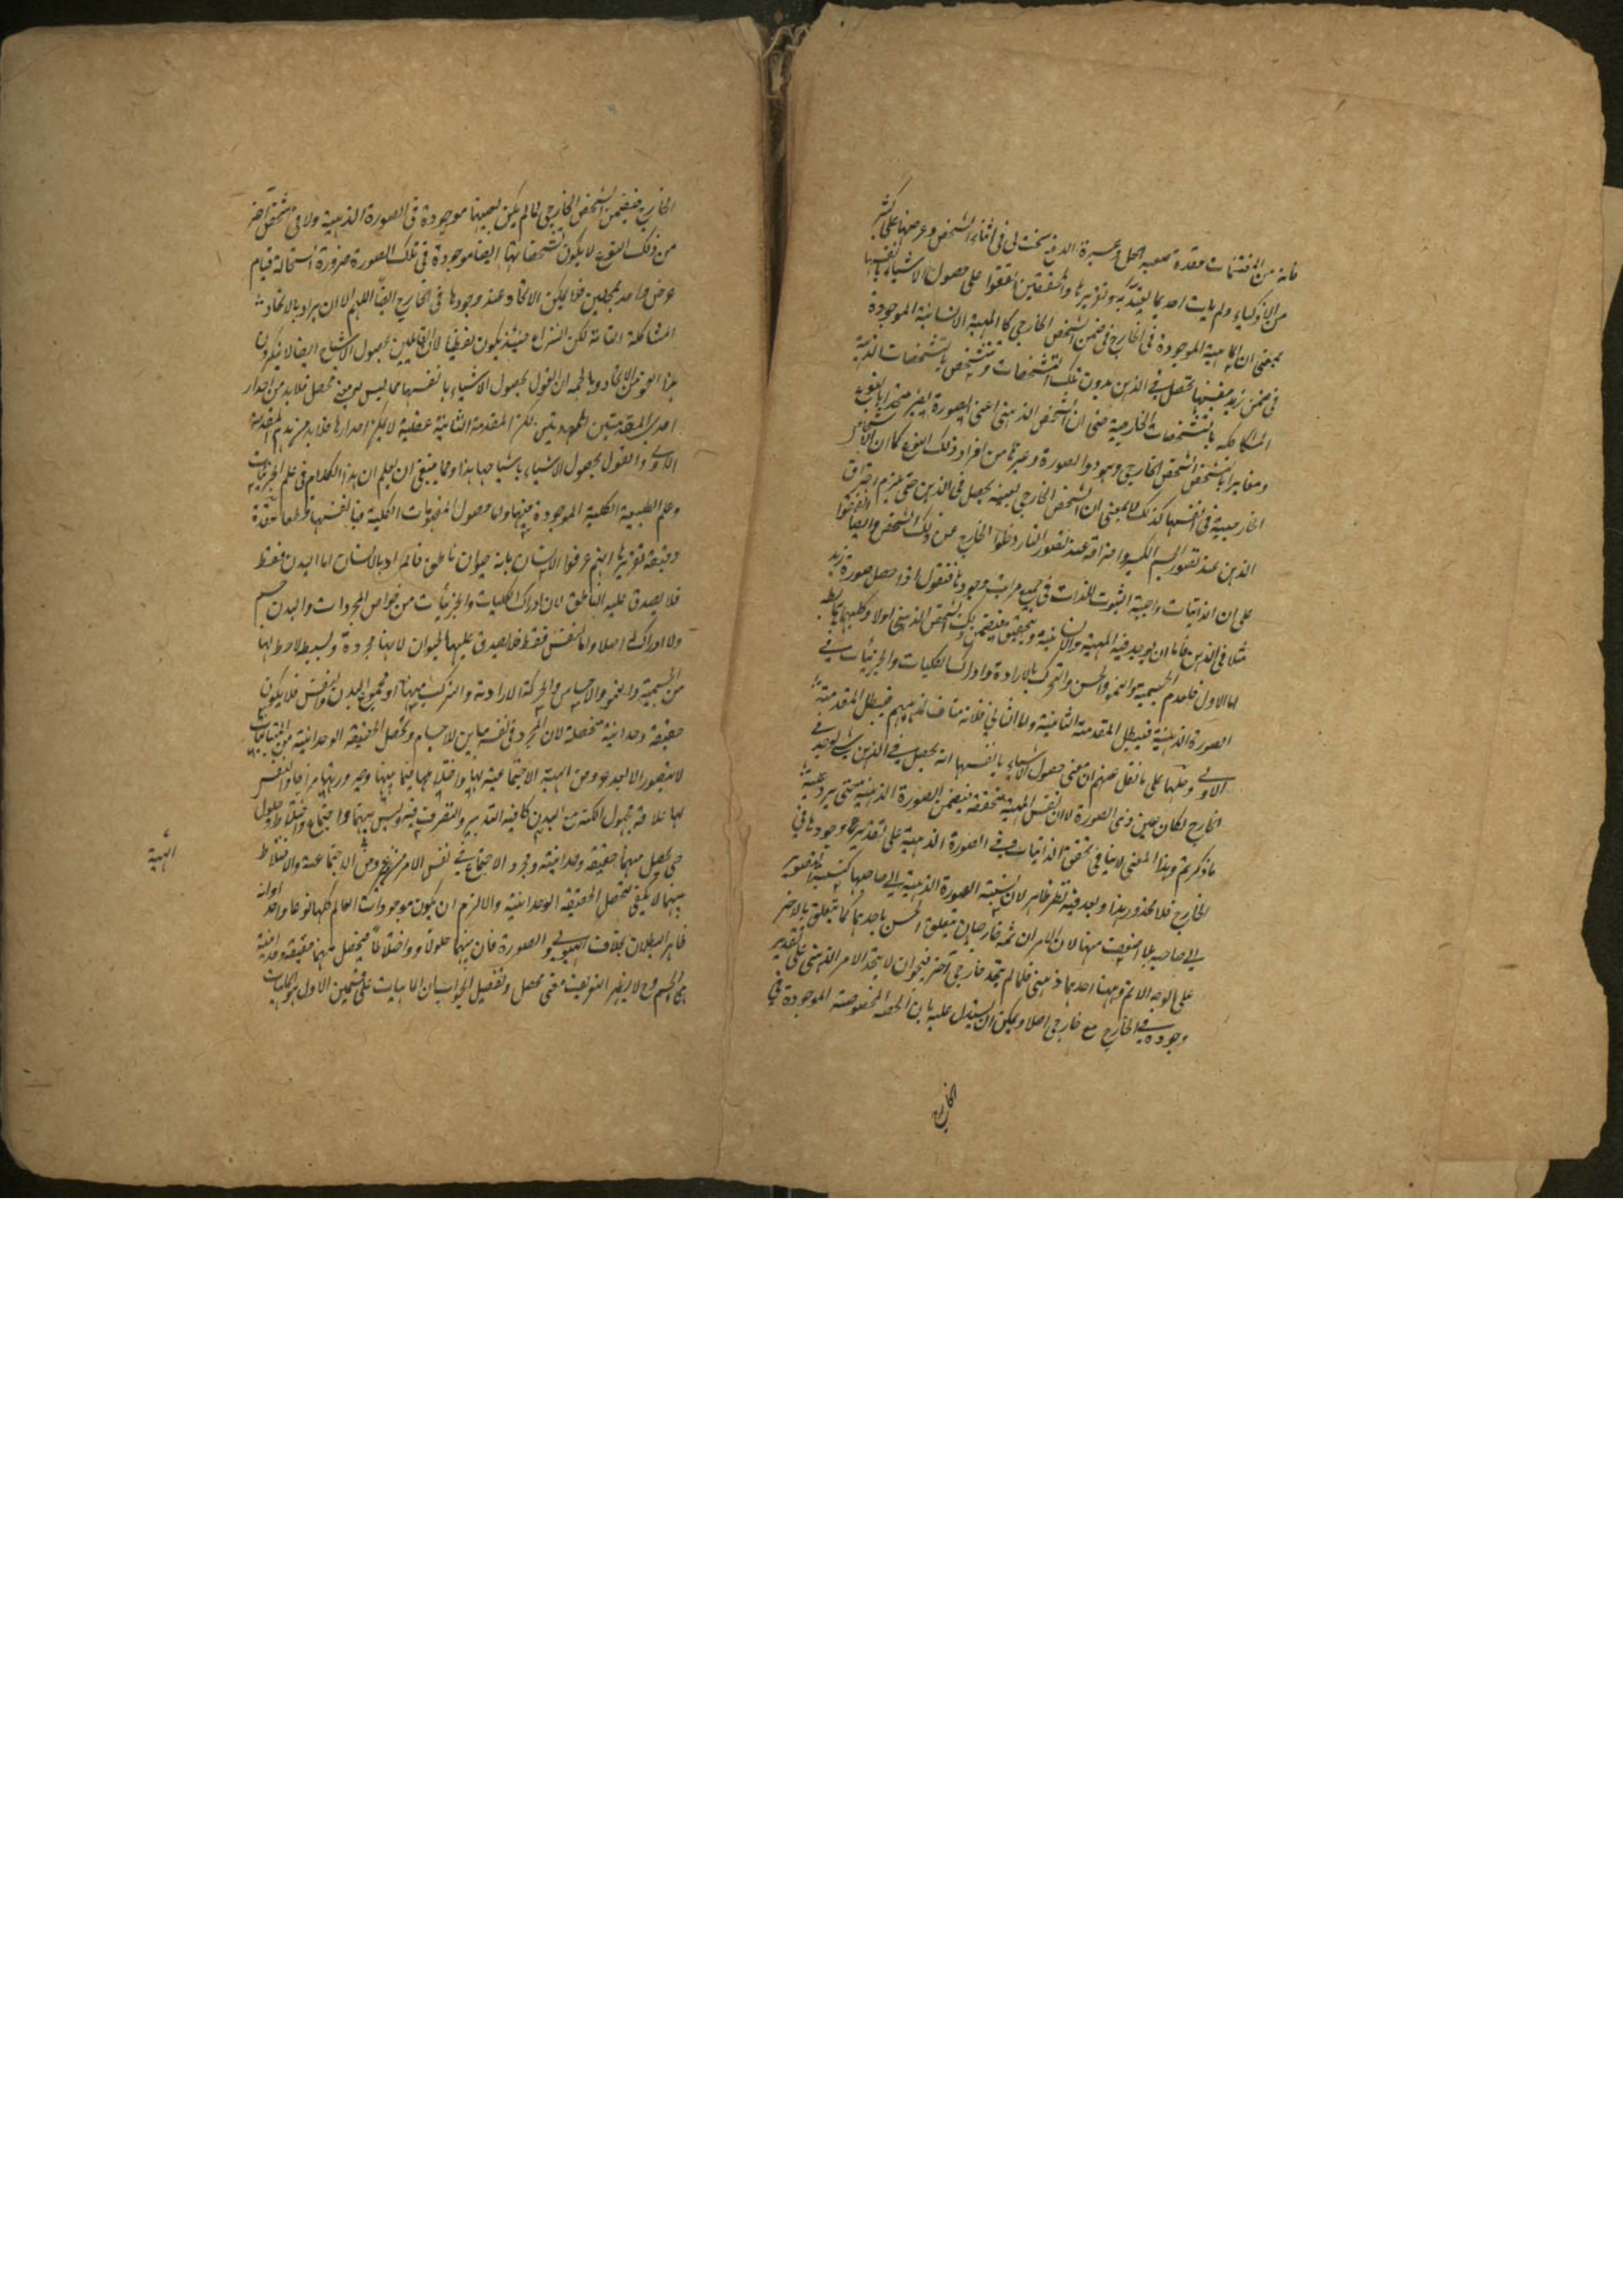 فانه من المغتنمات عقدة صعبة الحل وعسيرة الدفع سخت لى فى اثناء الشخص وعرضها على كثير
من الاذكياء ولم يات احد بما يعتد به وتقريرها والمحققين اتفقوا على حصول الاشياء بانفسها
بمعنى ان الماهية الموجودة فى الخارج فى ضمن الشخص الخارجى كالمهية الانسانية الموجودة
فى ضمن زيد بنفسها تحصل فى الذهن بدون تلك التشخصات وتتشخص بتشخصات ذهنية
بالتشخصات الخارجية حتى ان الشخص الذهنى اعنى الصورة
ومغايرا بالشخص الشخص الخارجى وسمو الصورة وغيرها من افراد ذلك النوع كما ان الاشخاص
الخارجية فى انفسها كذلك لا بمعنى ان الشخص الخارجى بعينه يحصل فى الذهن حتى يلزم احتراق
الذهن عند تصور النار وخلو الخارج عن ذلك الشخص وايضا
على ان الذاتيات واجبة الثبوت للذات فى جميع مراتب وجودها فنقول اذا حصل صورة زيد
مثلا فى الذهن فاما ان يوجد فيه المهية الانسانية ويتحقق فى ضمن ذلك الشخص الذهنى اولا وكليهما باطل
اما الاول فلعدم الجسمية والنمو والحس والتحرك بالارادة وادراك الكليات والجزئيات فى
الصورة الذهنية فيبطل المقدمة الثانية واما الثانى فلانه مناف لمذهبهم فيبطل المقدمة
الاولى وحلها على ما نقل عنهم ان معنى حصول الاشياء بانفسها انه يحصل فى الذهن شى لو وجد فى
الخارج لكان عين ذى الصورة لا ان نفس المهية متحققة فى ضمن الصورة الذهنية حتى يرد عليه
ما ذكرتم وهذا المعنى لا ينافى تحقق الذاتيات فى الصورة الذهنية على تقدير وجودها فى
الخارج فلا محذور هذا وبعد فيه نظر ظاهر لان نسبة الصورة الذهنية الى صاحبها كنسبة الصورة
الى صاحبه بل اضعف منها لان الامران ثمه خارجيان يتعلق الحس باحدهما كما يتعلق بالاخر
على الوجه الاتم وههنا احدهما ذهنى فلما لم يتحد خارجى آخر فيجوز ان لا يتحد الامر الذهنى على تقدير
وجوده فى الخارج مع خارجى اصلا ويمكن ان يستدل عليه بان الحصة المخصوصة الموجودة فى
الخارج
الخارج فى ضمن الشخص الخارجى لما لم يكن بعينها موجودة فى الصورة الذهنية ولا فى شخص آخر
من ذلك النوع لا يكون تشخصاتها ايضا موجودة فى تلك الصورة ضرورة استحالة قيام
عرض واحد بمحلين فلا يمكن الاتحاد عند وجودها فى الخارج ايضا اللهم الا ان يراد بالاتحاد
المشاكلة التامة لكن النزاع حينئذ يكون لفظيا لان القائلين بحصول الاشباح ايضا لا ينكرون
هذا النحو من الاتحاد وبالجملة ان القول بحصول الاشياء بانفسها مما ليس له معنى محصل فلابد من اهدار
احدى المقدمتين لكن المقدمة الثانية عقلية لا يمكن اهدارها فلابد من هدم المقدمة
الاولى والقول بحصول الاشياء باشباحها هذا ومما ينبغى ان يعلم ان هذا الكلام فى علم الجزئيات
وعلم الطبيعة الكلية الموجودة فيها واما حصول المفهومات الكلية فبانفسها قطعا عقدة
دقيقة تقريرها انهم عرفوا الانسان بانه حيوان ناطق فالمراد بالانسان اما البدن فقط
فلا يصدق عليه الناطق لان ادراك الكليات والجزئيات من خواص المجردات والبدن جسم
ولا ادراك له اصلا واما النفس فقط فلا يصدق عليها الحيوان لانها مجردة وبسيطة لا حظ لها
من الجسمية والنمو والاحساس والحركة الارادية والتركيب منها او مجموع البدن والنفس فلا يكون
حقيقة وحدانية متحصلة لان المجرد فى نفسه مباين للاجسام وتحصل الحقيقة الوحدانية من المتباينات
لا يتصور الا بعد عروض الهيئة الاجتماعية لها واختلاطها فيما بينها وصيرورتها مزاجا والنفس
لها علاقة مجهول الكنه مع البدن كافية التدبير والتصرف فيه وليس بينهما اجتماع واختلاط وحلول
حتى يحصل منهما حقيقة وحدانية ومجرد الاجتماع فى نفس الامر من غير عروض الاجتماعية والاختلاط
بينهما لا يكفى لتحصل الحقيقة الوحدانية والا لزم ان يكون موجودات العالم كلها نوعا واحدا وانه
ظاهر البطلان بخلاف الهيولى والصورة فان بينهما حلولا واختلاطا فيحصل منهما حقيقة وحدانية
هى الجسم وح لا يظهر التعريف معنى محصل وتفصيل الجواب ان الماهيات على قسمين الاول
المهية